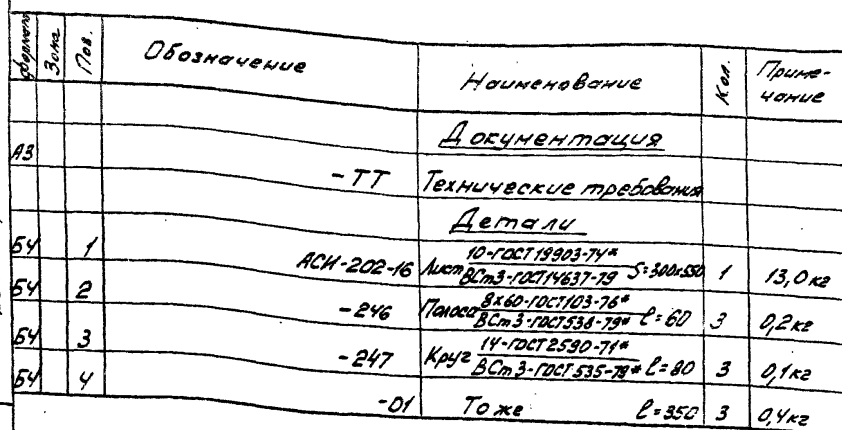 Формат Зона Поз. Обозначение Наименование Кол. Приме-
чание
Документация
А3 -ТТ Технические требования
Детали
БЧ 1 АСИ-202-16 Лист 10-ГОСТ 19903-74* / ВСт3-ГОСТ14637-79 S=300x550 1 13,0 кг
БЧ 2 -246 Полоса 8x60-ГОСТ103-76* / ВСт3-ГОСТ535-79* ℓ=60 3 0,2 кг
БЧ 3 -247 Круг 14-ГОСТ2590-71* / ВСт3-ГОСТ535-79* ℓ=80 3 0,1 кг
БЧ 4 -01 То же ℓ=350 3 0,4 кг